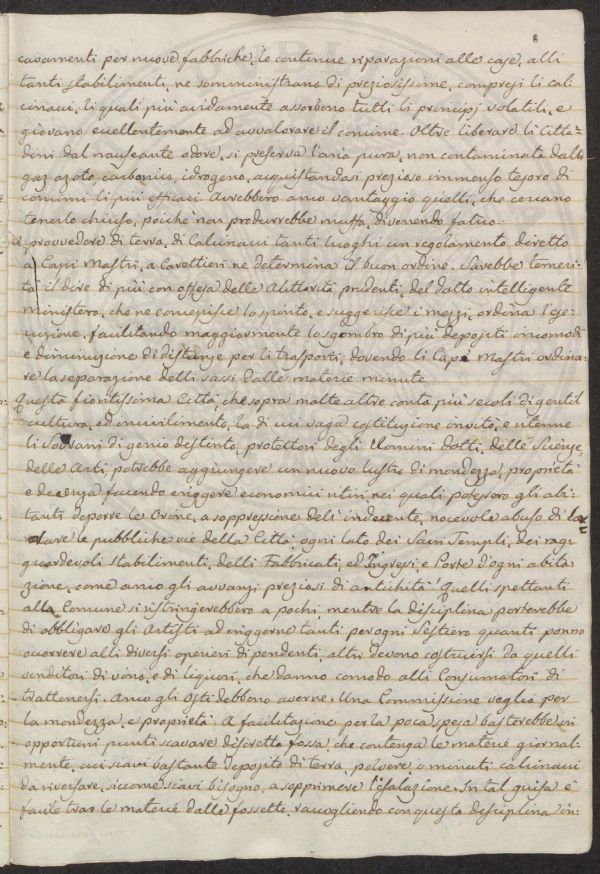 cavamenti per nuove fabbriche, le continue riparazioni alle case, alli
tanti stabilimenti, ne somministrano di preziosissime, compresi li cal:
cinacci, li quali più avidamente assorbono tutti li principj volatili, e
giovano eccellentemente ad avvalorare il concime. Oltre liberare li Citta=
dini dal nauseante odore, si preserva l'aria pura, non contaminata dalli
gaz azoto, carbonico, idrogeno, acquistandosi prezioso immenso tesoro di
concimi li più efficaci. Avrebbero anco vantaggio quelli, che cercano
tenerlo chiuso, poichè non produrrebbe muffa, divenendo fatuo.
A provvedere di terra, di Calcinacci tanti luoghi un regolamento diretto
a Capi Mastri, a Carettieri ne determina il buon ordine. Sarebbe temeri:
tà il dire di più con offesa delle Autorità prudenti, del dotto intelligente
ministero, che ne concepisce lo spirito, e suggerisce i mezzi, ordina l'ese:
cuzione, facilitando maggiormente lo sgombro di più depositi incomodi
e diminuzione di distanze per li trasporti, dovendo li Capi Mastri ordina:
re la separazione delli sassi dalle materie minute.
Questa fioritissima Città, che sopra molte altre conta più secoli di gentil
cultura, ed incivilimento, la di cui vaga costituzione invitò, e ritenne
li Sovrani di genio distinto, protettori degli Uomini dotti, delle Scienze,
delle Arti, potrebbe aggiungere un nuovo lustro di mondezza, proprietà
e decenza facendo eriggere economici siti, nei quali potessero gli abi:
tanti deporre le Orine, a soppressione dell'indecente, nocevole abuso di lor=
dare le pubbliche vie della Città ogni lato dei Sacri Templi, dei rag:
guardevoli Stabilimenti, delli Fabbricati, ed Ingressi, e Porte d'ogni abita:
zione, come anco gli avvanzi preziosi di antichità. Quelli spettanti
alla Comune si ristringerebbero a pochi, mentre la disciplina porterebbe
di obbligare gli Artisti ad eriggerne tanti per ogni Sestiero quanti ponno
occorrere alli diversi operieri dipendenti, altri devono costruirsi da quelli
venditori di vino, e di liquori, che danno comodo alli Consumatori di
trattenersi. Anco gli Osti debbono averne. Una Commissione veglia per
la mondezza, e proprietà. A facilitazione per la poca spesa basterebbe in
opportuni punti scavare discretta fossa, che contenga le materie giornal:
mente, cui siavi bastante deposito di terra, polvere, o minuti calcinacci
da riversare, siccome siavi bisogno, a sopprimere l'esalazione. In tal guisa è
facile trar le materie dalle fossette, raccogliendo con questa disciplina in: